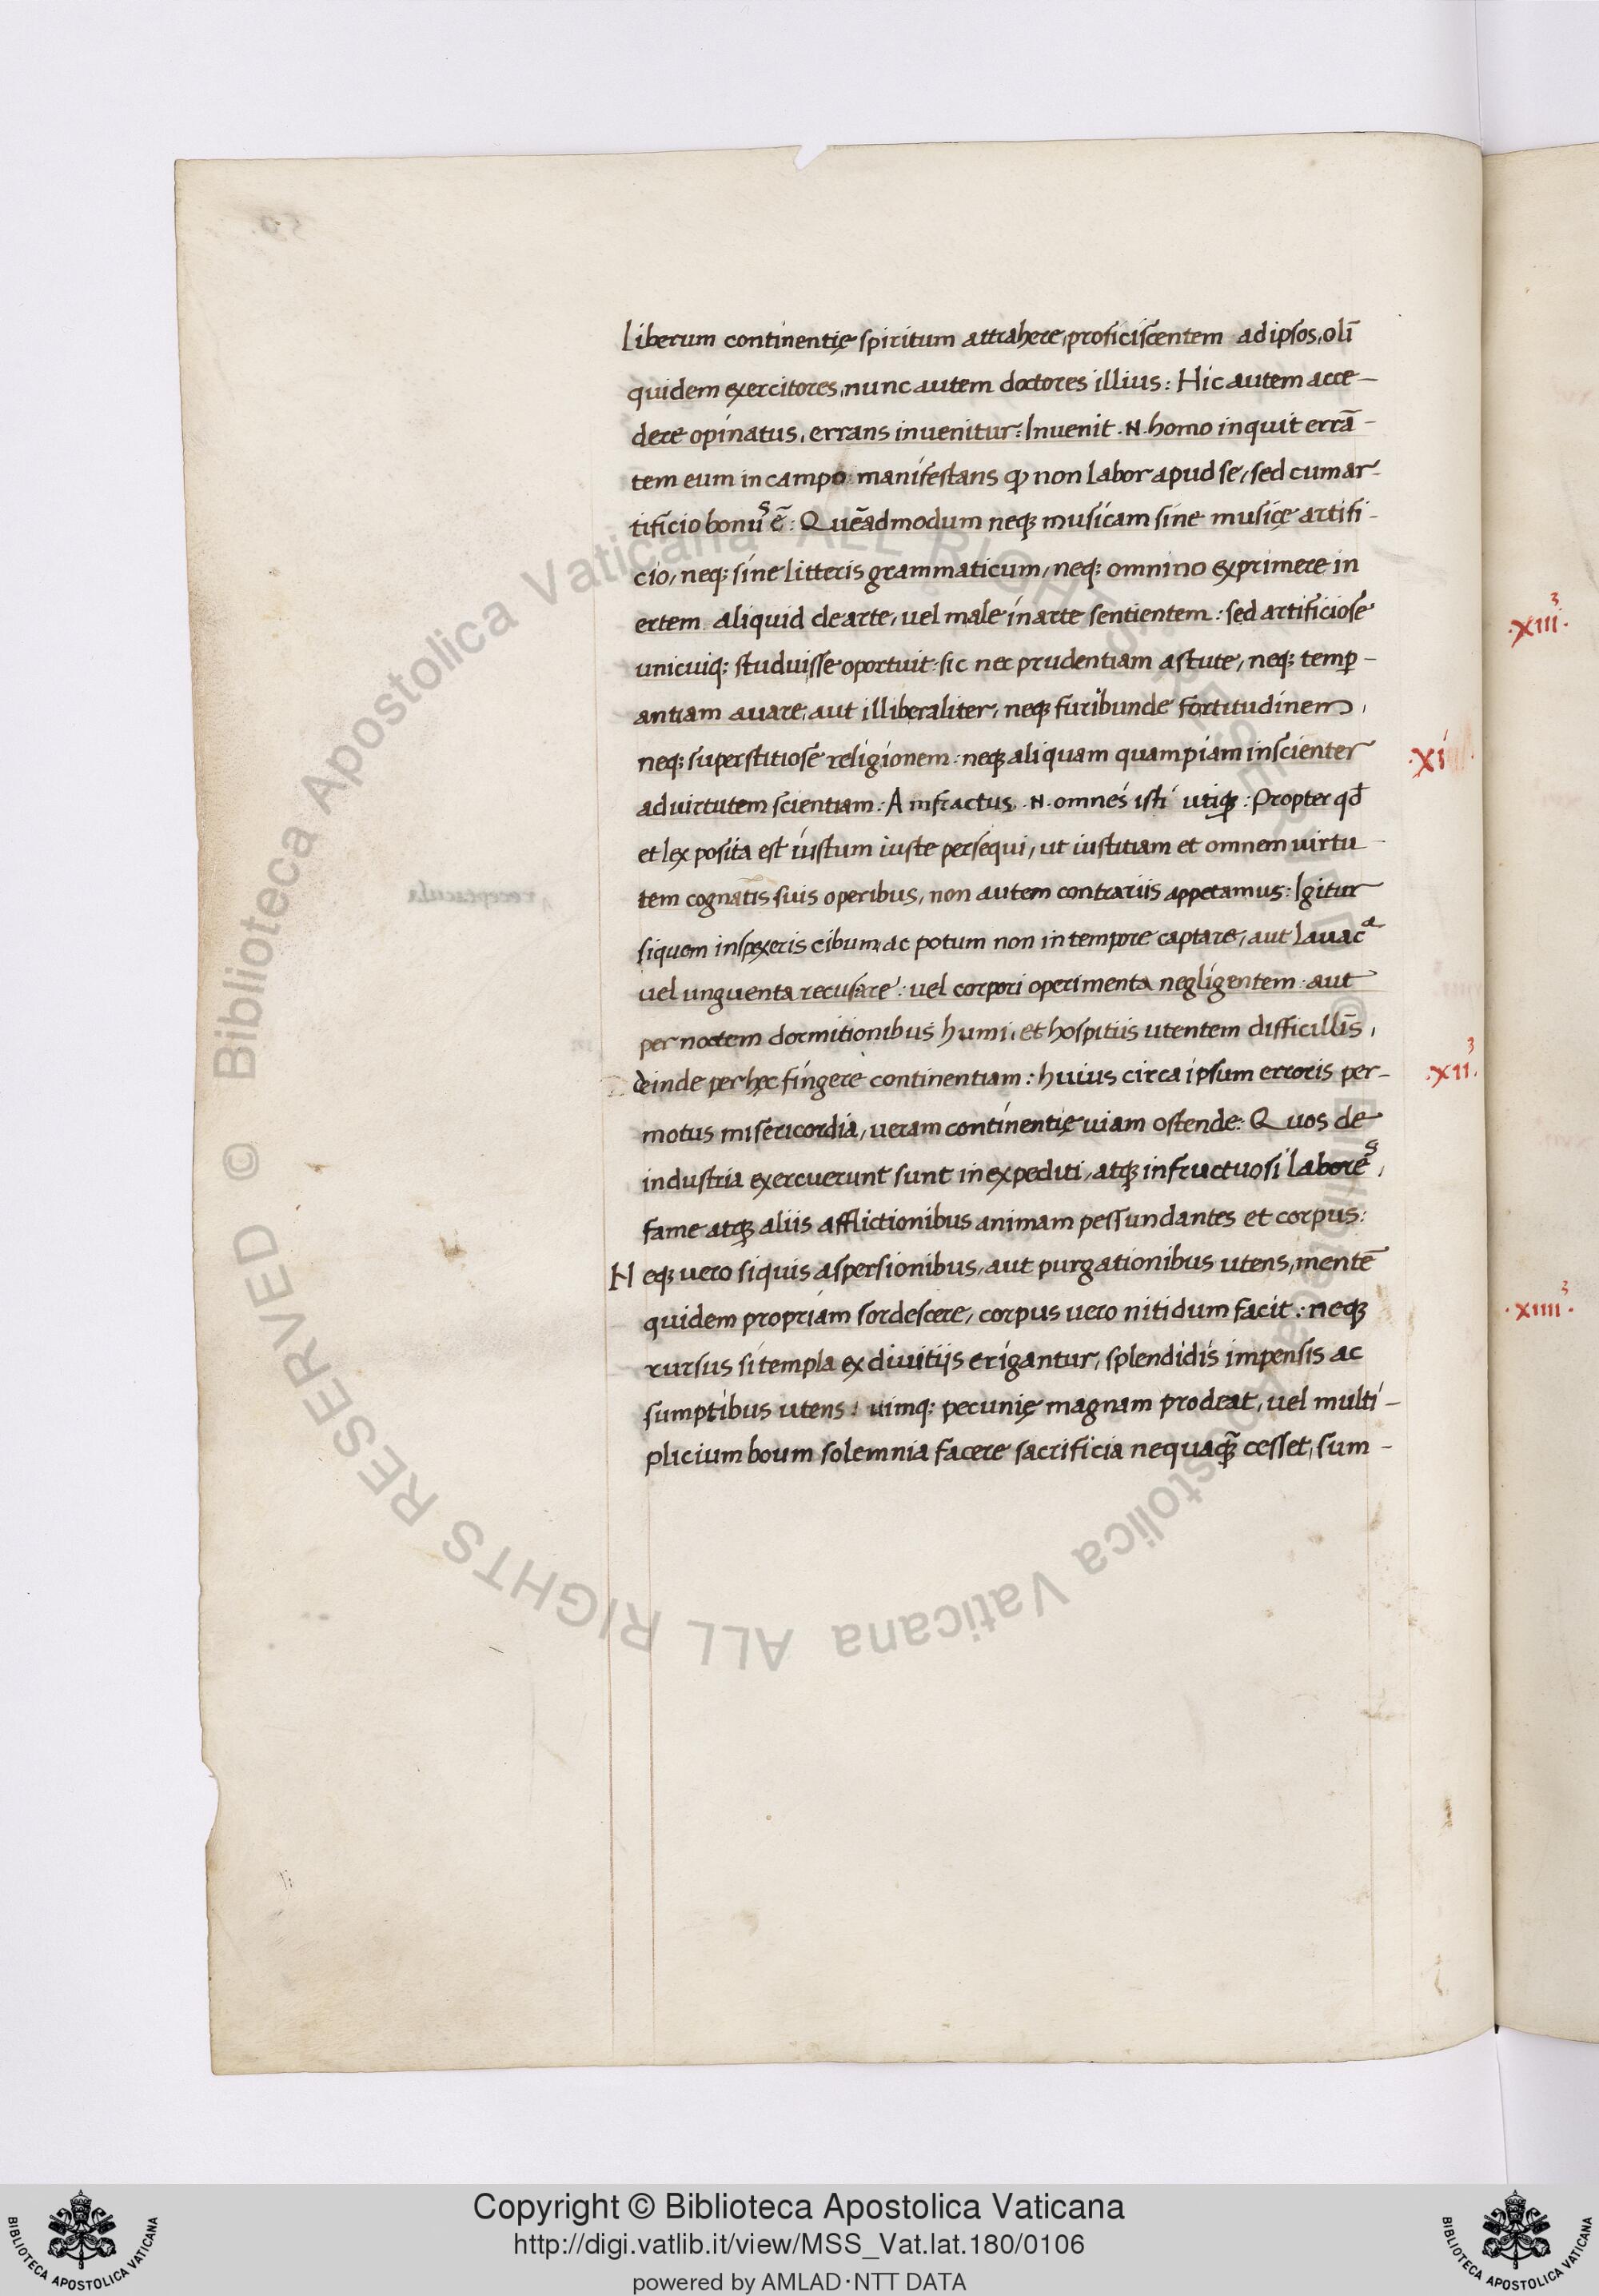 Liberum continentię spiritum attrahere, proficiscentem ad ipsos, oli̅
quidem exercitores, nunc autem doctores illius: Hic autem acce-
dere opinatus, errans inuenitur: Inuenit .N. homo inquit erra̅-
tem eum in campo manifestans ꝙ non labor apud se, sed cum ar-
tificio bonus e̅: Que̅admodum neqꝫ musicam sine musicę artifi-
cio, neq: sine litteris grammaticum, neq: omnino exprimere in
ertem aliquid de arte, uel male in arte sentientem: sed artificiose
unicuiq: studuisse oportuit: sic nec prudentiam astute, neq: temꝑ-
antiam auare, aut illiberaliter, neqꝫ furibunde fortitudinem,
neq: superstitiose religionem: neqꝫ aliquam quampiam inscienter
ad uirtutem scientiam: Amfractus .N. omnes isti utiqꝫ: Propter qd̅
et lex posita est iustum iuste persequi, ut iustitiam et omnem uirtu
tem cognatis suis operibus, non autem contrariis appetamus: Igitur
siquem inspexeris cibum, ac potum non in tempore captare, aut lauacᵃ
uel unguenta recusare: uel corpori operimenta negligentem: aut
per noctem dormitionibus humi, et hospitiis utentem difficillis,
deinde per hęc fingere continentiam: huius circa ipsum erroris per-
motus misericordia, ueram continentię uiam ostende: Quos de
industria exercuerunt sunt inexpediti, atqꝫ infructuosi labores,
fame atqꝫ aliis afflictionibus animam pessundantes et corpus:
Neqꝫ uero siquis aspersionibus, aut purgationibus utens, mente̅
quidem propriam sordescere, corpus uero nitidum facit: neqꝫ
rursus si templa ex diuitijs erigantur, splendidis impensis ac
sumptibus utens: uimq: pecunię magnam prodeat, uel multi-
plicium boum solemnia facere sacrificia nequaqꝫ̅ cesset, sum-
.XIII.³
.XI
.XII.³
.XIIII.³
© Biblioteca Apostolica Vaticana ALL RIGHTS RESERVED
Copyright © Biblioteca Apostolica Vaticana
http://digi.vatlib.it/view/MSS_Vat.lat.180/0106
powered by AMLAD·NTT DATA
BIBLIOTECA APOSTOLICA VATICANA
BIBLIOTECA APOSTOLICA VATICANA